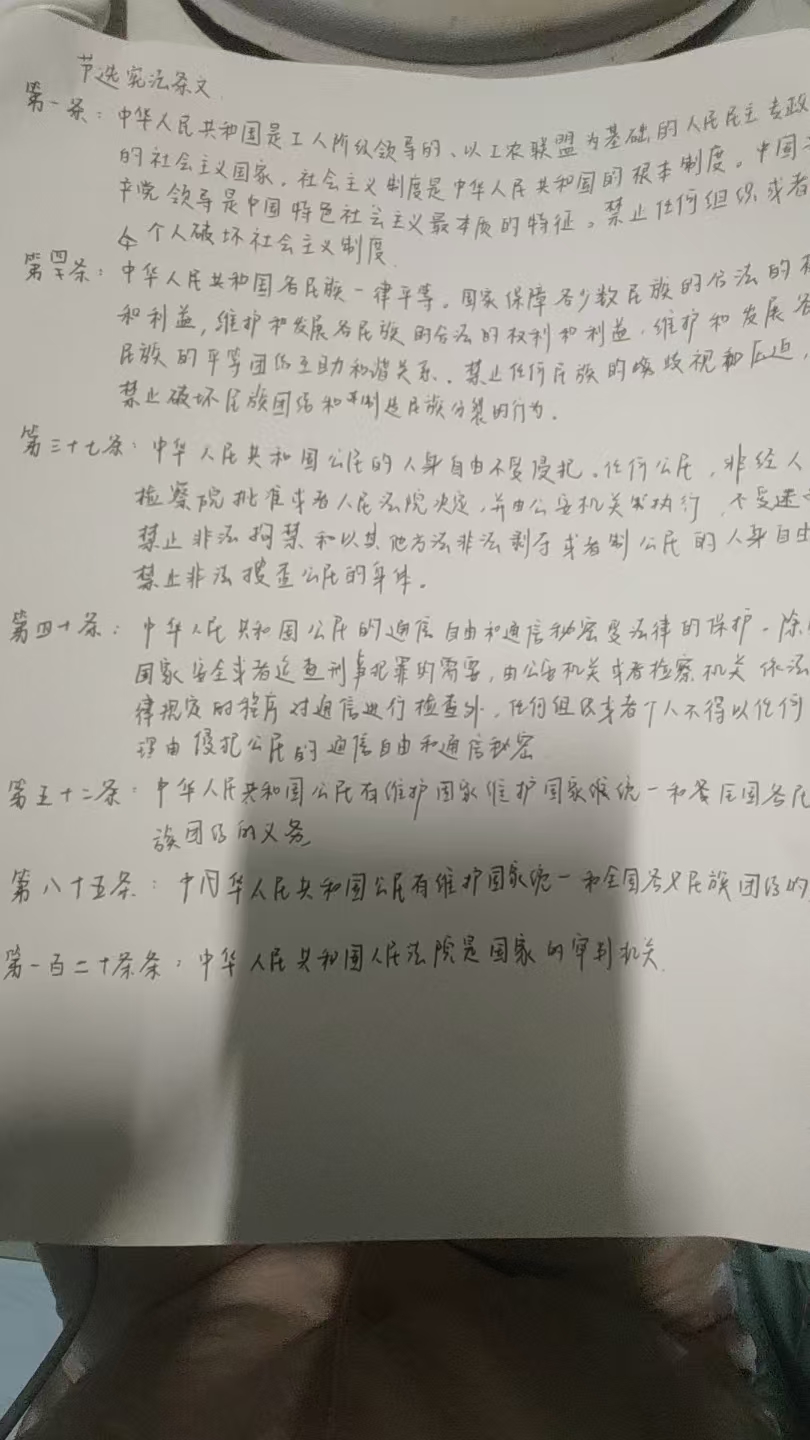 节选宪法条文
第一条：中华人民共和国是工人阶级领导的、以工农联盟为基础的人民民主专政
的社会主义国家。社会主义制度是中华人民共和国的根本制度。中国
产党领导是中国特色社会主义最本质的特征。禁止任何组织或者
个人破坏社会主义制度
第四条：中华人民共和国各民族一律平等。国家保障各少数民族的合法的
和利益，维护和发展各民族的合法的权利和利益，维护和发展各
民族的平等团结互助和谐关系。禁止任何民族的歧视和压迫，
禁止破坏民族团结和制造民族分裂的行为。
第三十七条：中华人民共和国公民的人身自由不受侵犯。任何公民，非经人
检察院批准或者人民法院决定，并由公安机关执行，不受逮
禁止非法拘禁和以其他方法非法剥夺或者制公民的人身自由
禁止非法搜查公民的身体。
第四十条：中华人民共和国公民的通信自由和通信秘密受法律的保护。除
国家安全或者追查刑事犯罪的需要，由公安机关或者检察机关依法
律规定的程序对通信进行检查外，任何组织或者个人不得以任何
理由侵犯公民的通信自由和通信秘密
第五十二条：中华人民共和国公民有维护国家维护国家统一和全国各民
族团结的义务
第八十五条：中华人民共和国公民有维护国家统一和全国各民族团结的
第一百二十条条：中华人民共和国人民法院是国家的审判机关.